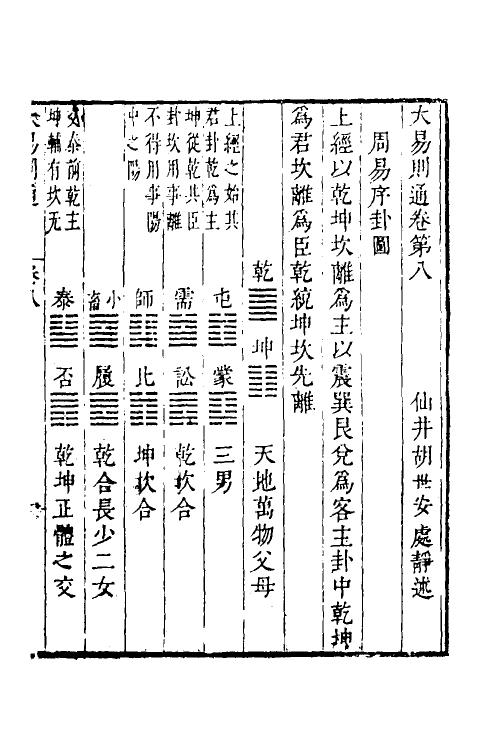 大易則通卷第八
仙井胡世安處靜述
周易序卦圖
上經以乾坤坎離爲主以震巽艮兌爲客主卦中乾坤
爲君坎離爲臣乾統坤坎先離
乾 坤 天地萬物父母
上經之始其
君卦乾爲主
屯 蒙 三男
坤從乾其臣
卦坎用事離
需 訟 乾坎合
不得用事陽
中之陽
師 比 坤坎合
小畜 履 乾合長少二女
交泰前乾主
坤輔有坎无
泰 否 乾坤正體之交